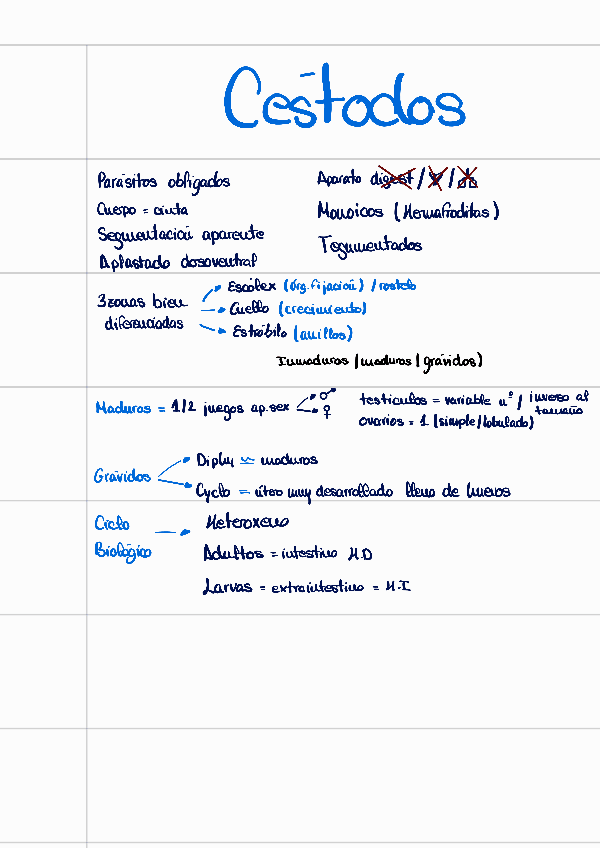 Cestodos
Parásitos obligados
Cuerpo = cinta
Segmentación aparente
Aplastado dosoventral
Aparato digest / /
Monoicos (Hermafroditas)
Tegumentados
3 zonas bien diferenciadas
Escólex (órg. fijación) / rostelo
Cuello (crecimiento)
Estróbilo (anillos)
Inmaduros / maduros / grávidos)
Maduros = 1/2 juegos ap. sex ♂ ♀
testículos = variable nº / inverso al tamaño
ovarios = 1 (simple/lobulado)
Grávidos
Diphy ≃ maduros
Cyclo = útero muy desarrollado lleno de huevos
Ciclo Biológico
Heteroxeno
Adultos = intestino H.D
Larvas = extraintestino = H.I